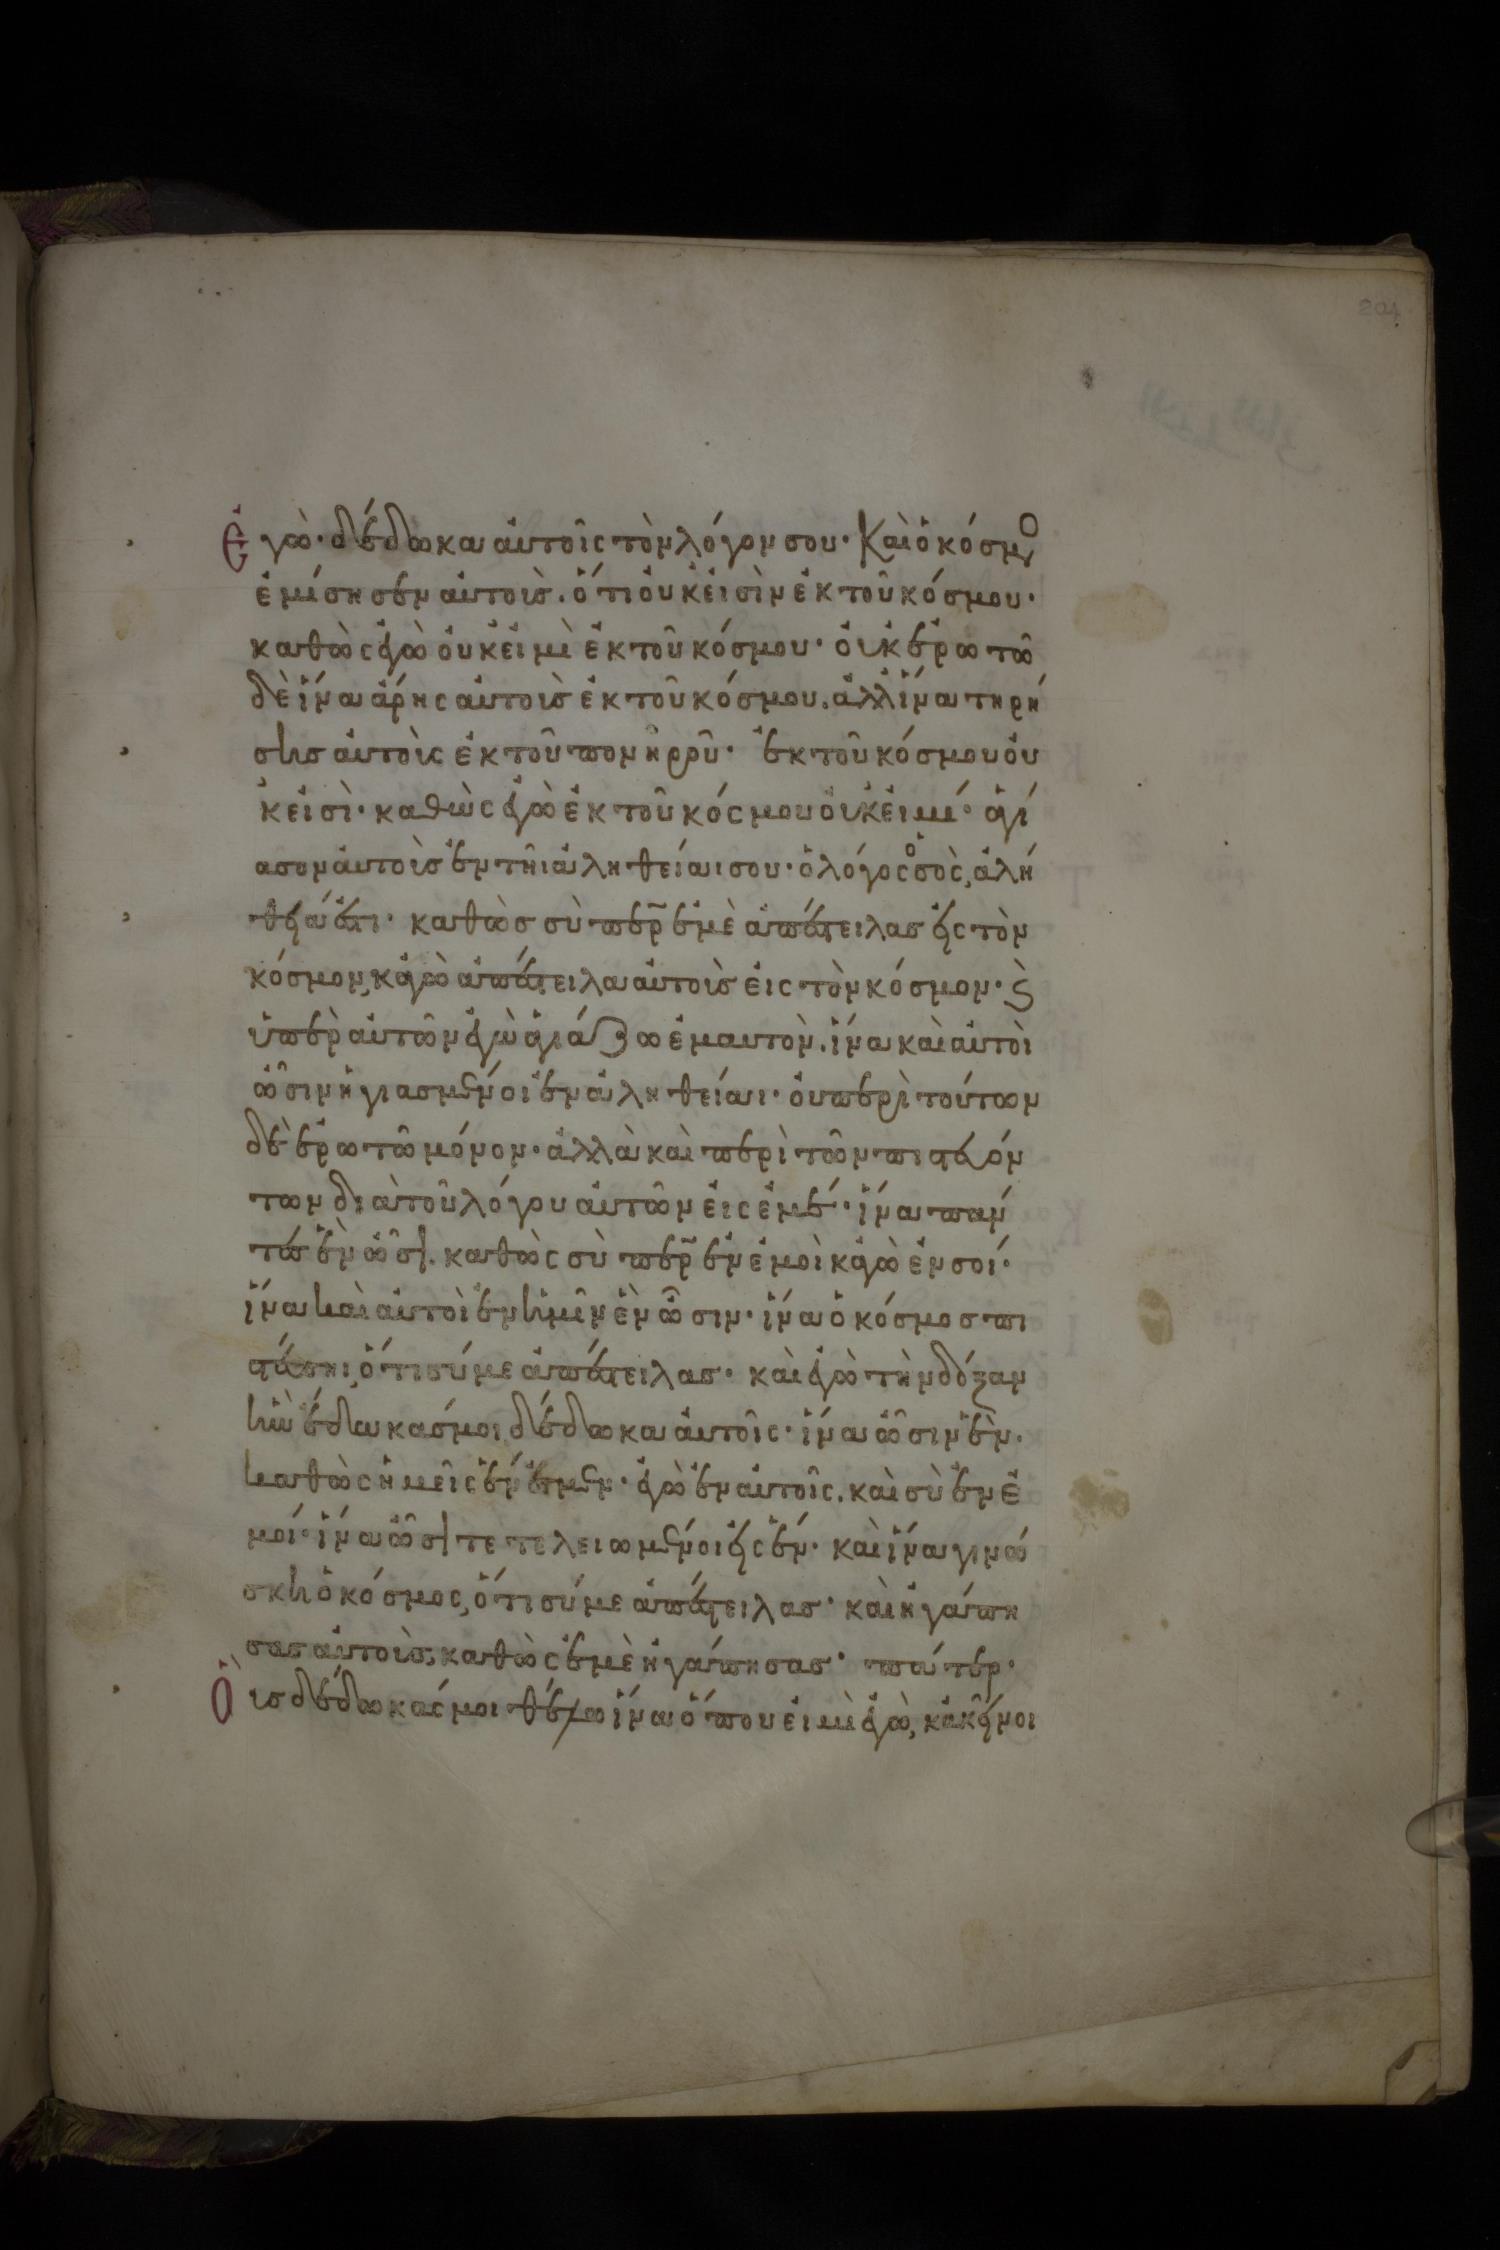 204
Ἐγὼ· δέδωκα αὐτοῖς τὸν λόγον σου· Καὶ ὁ κόσμο
ἐμίσησεν αὐτοὺς. ὅτι οὐκ εἰσὶν ἐκ τοῦ κόσμου·
καθὼς ἐγὼ οὐκ εἰμὶ ἐκ τοῦ κόσμου· οὐκ ἐρωτῶ
δὲ ἵνα ἄρης αὐτοὺς ἐκ τοῦ κόσμου. ἀλλ ἵνα τηρή
σης αὐτοὺς ἐκ τοῦ πονηροῦ· ἐκ τοῦ κόσμου οὐ
κ εἰσὶ· καθὼς ἐγὼ ἐκ τοῦ κόσμου οὐκ εἰμί· ἁγί
ασον αὐτοὺς ἐν τῆι ἀληθείαι σου· ὁ λόγος ὁ σὸς, ἀλή
θειά ἐστι· καθὼς σὺ περ ἐμὲ ἀπέστειλας εἰς τὸν
κόσμον, κἀγὼ ἀπέστειλα αὐτοὺς εἰς τὸν κόσμον· ϛ
ὑπὲρ αὐτῶν ἐγὼ ἁγιάζω ἐμαυτὸν. ἵνα καὶ αὐτοὶ
ὦσιν ἡγιασμένοι ἐν ἀληθείαι· οὐ περὶ τούτων
δὲ ἐρωτῶ μόνον· ἀλλὰ καὶ περὶ τῶν πιστευόν
των διὰ τοῦ λόγου αὐτῶν εἰς ἐμέ· ἵνα πάν
τες ἓν ὦσι. καθὼς σὺ περ ἐν ἐμοὶ κἀγὼ ἐν σοί·
ἵνα καὶ αὐτοὶ ἐν ἡμῖν ἓν ὦσιν· ἵνα ὁ κόσμος πι
στεύσηι, ὅτι σύ με ἀπέστειλας· καὶ ἐγὼ τὴν δόξαν
ἣν ἔδωκάς μοι, δέδωκα αὐτοῖς· ἵνα ὦσιν ἓν·
καθὼς ἡμεῖς ἕν ἐσμεν· ἐγὼ ἐν αὐτοῖς. καὶ σὺ ἐν ἐ
μοί· ἵνα ὦσι τετελειωμένοι εἰς ἕν· καὶ ἵνα γινώ
σκη ὁ κόσμος, ὅτι σύ με ἀπέστειλας· καὶ ἠγάπη
σας αὐτοὺς, καθὼς ἐμὲ ἠγάπησας· πάτερ·
Οὓς δέδωκάς μοι θέλω ἵνα ὅπου εἰμὶ ἐγὼ, κἀκεῖνοι